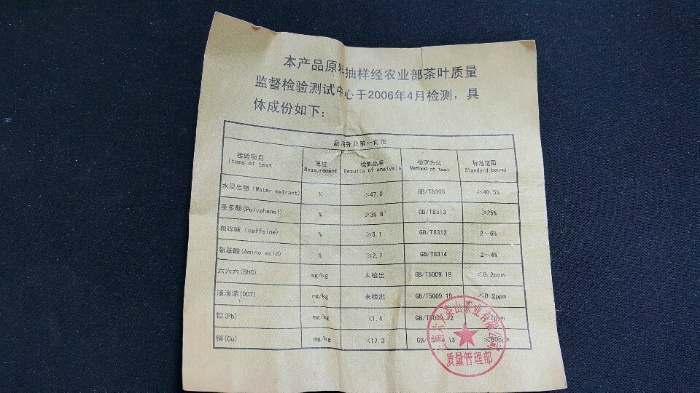 本产品原料抽样经农业部茶叶质量
监督检验测试中心于2006年4月检测，具
体成份如下：
检验项目 单位 检测结果 检测方法 标准范围
Items of test Measurement Results of analysis Method of test Standard bound
水浸出物 (Water extract) % ≥47.0 GB/T8305 ≥40.5%
茶多酚 (Polyphenol) % GB/T8313 ≥25%
咖啡碱 (caffeine) % ≥5.1 GB/T8312 2-6%
氨基酸 (Amino acid) % ≥2.7 GB/T8314 2-4%
六六六 (BHC) mg/kg 未检出 GB/T5009.19 ≤0.2ppm
滴滴涕 (DDT) mg/kg 未检出 GB/T5009.19 ≤0.2ppm
铅 (Pb) mg/kg <1.4
铜 (Cu) mg/kg <17.3
质量管理部